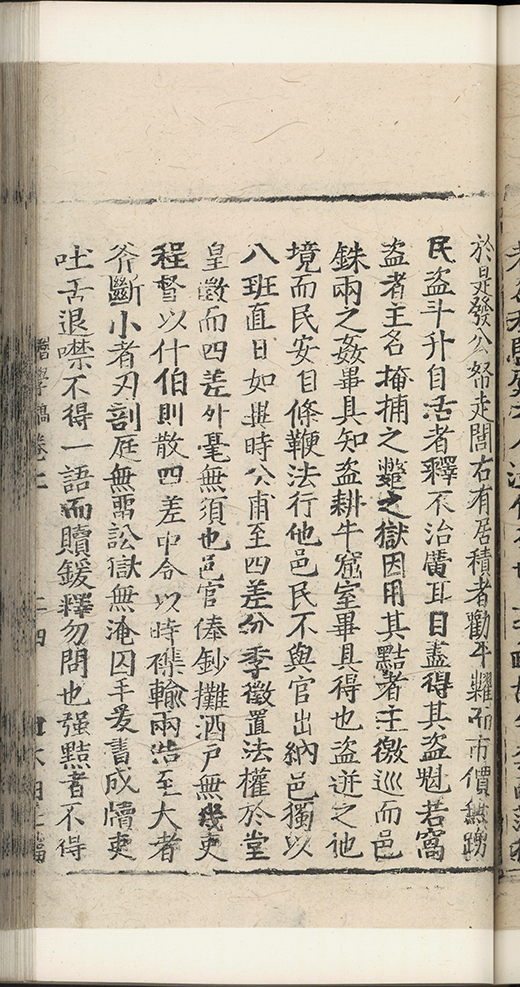 於是發公帑走閭右有居積者勸平糶而市價無踴
民盗斗升自活者釋不治廣耳目盡得其盗魁若窩
盗者主名掩捕之斃之獄因用其黠者主徼巡而邑
銖兩之姦畢具知盗耕牛窟室畢具得也盗迸之他
境而民安自條鞭法行他邑民不與官出納邑獨以
八班直日如異時公甫至四差分季徵置法權於堂
皇徵而四差外毫無須也邑官俸鈔攤酒戸無幾吏
程督以什伯則散四差中令以時傳輸兩造至大者
斧斷小者刃剖庭無留訟獄無淹囚手爰書成牘吏
吐舌退噤不得一語而贖鍰釋勿問也强黠者不得
二四